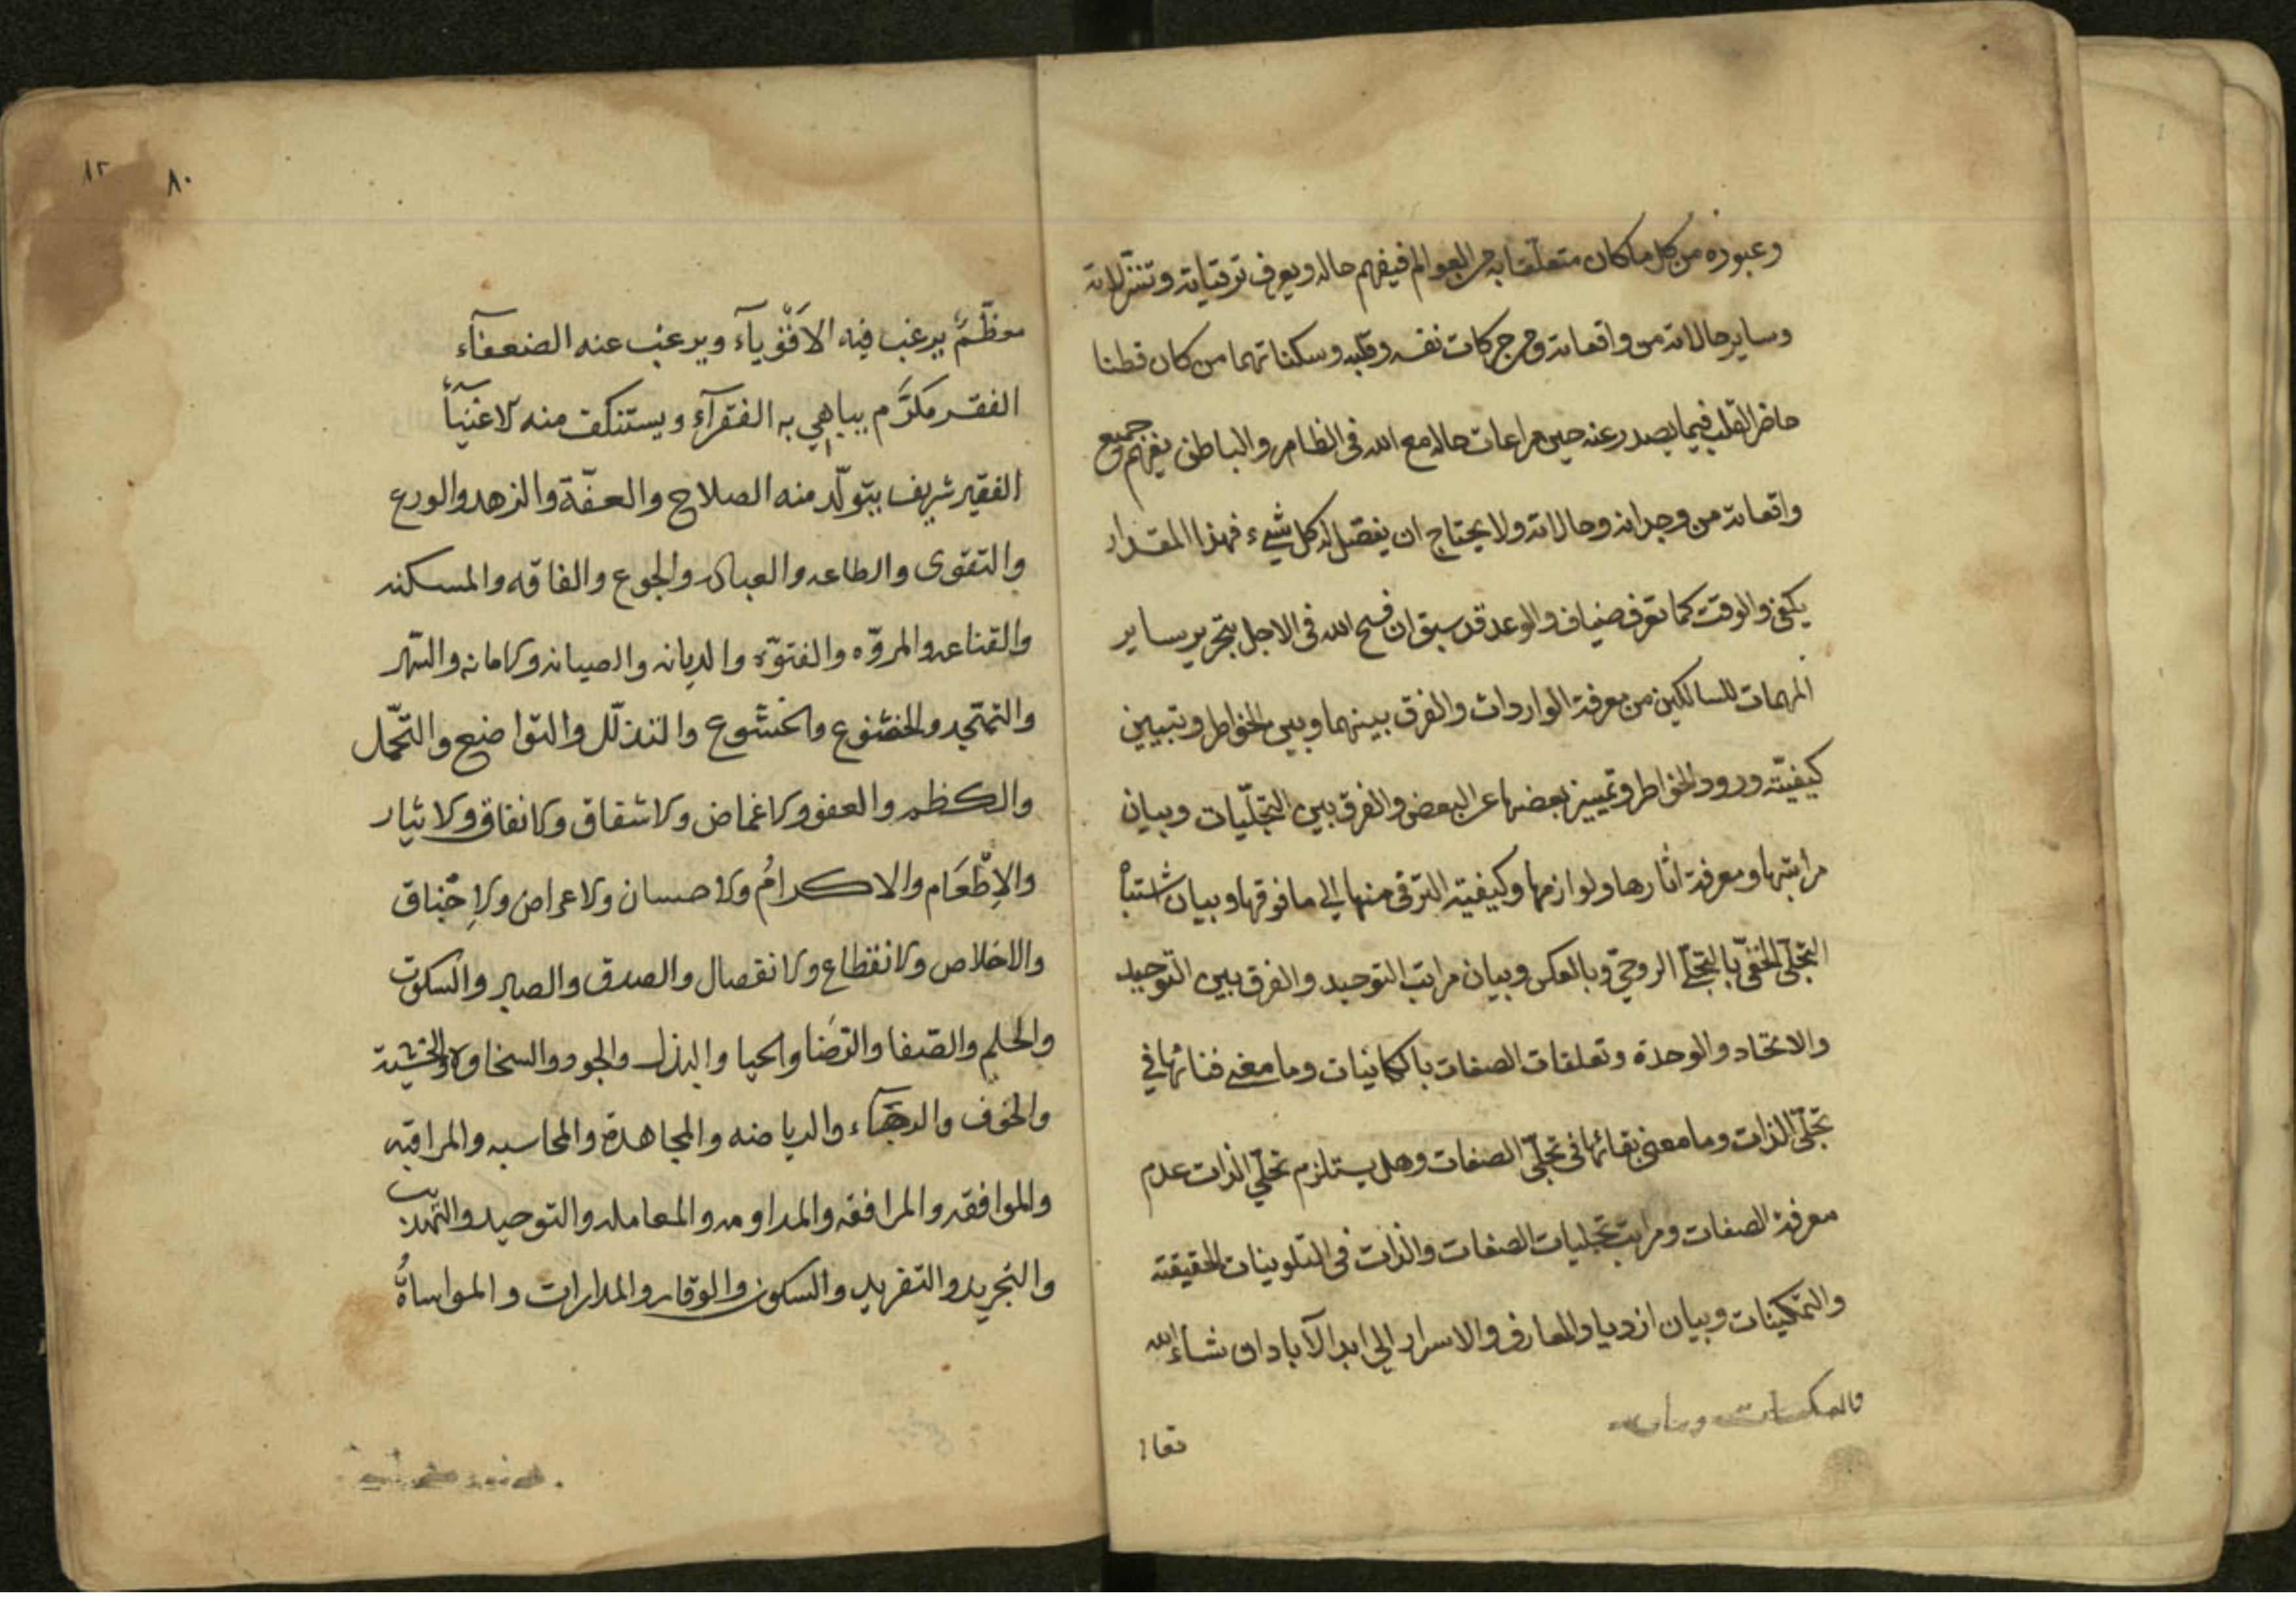 وعبوره من كل ما كان متعلقا به من العوالم فيفهم حاله ويعرف ترقياته وتنزلاته
وساير حالاته من واقعاته ومن حركات نفسه وقلبه وسكناتهما من كان فطنا
حاضر القلب فيما يصدر عنه حين مراعات حاله مع الله فى الظاهر والباطن يفهم جميع
واقعاته من وجدانه وحالاته ولا يحتاج ان يفصّل له كل شيء فهذا المقدار
يكفى والوقت كما تعرف ضياق والوعد قد سبق ان فسح الله فى الاجل بتحرير ساير
المهمات للسالكين من معرفة الواردات والفرق بينهما وبين الخواطر وتبيين
كيفيّة ورود الخواطر وتمييز بعضها عن البعض والفرق بين التجلّيات وبيان
مراتبها ومعرفة اثارها ولوازمها وكيفية الترقى منها الى ما فوقها وبيان اشتباه
التجلّى الخفىّ بالتجلّى الروحىّ وبالعكس وبيان مراتب التوحيد والفرق بين التوحيد
والاتحاد والوحدة وتعلقات الصفات بالكاينات وما معنى فنائها فى
تجلّى الذات وما معنى بقائها فى تجلّى الصفات وهل يستلزم تجلّى الذات عدم
معرفة الصفات ومراتب تجليات الصفات والذات فى التلوينات الحقيقة
والتمكينات وبيان ازدياد المعارف والاسرار الى ابد الآباد ان شاء الله
تعا
٨٠
٨٢
معظّمٌ يرغب فيه الاقوياء ويرغب عنه الضعفآء
الفقر مكرَّم يباهي به الفقرآء ويستنكف منه الاغنيآء
الفقير شريف يتولّد منه الصلاح والعفّة والزهد والورع
والتقوى والطاعه والعباده والجوع والفاقه والمسكنه
والقناعه والمروّه والفتوّه والديانه والصيانه والامانه والسّهر
والتهجّد والخضوع والخشوع والتذلّل والتواضع والتحّمل
والكظم والعفو والاغماض والاشفاق والانفاق والايثار
والاِطْعَام والاكرامُ والاحسان والاعراض
والاخلاص والانقطاع والانفصال والصدق والصبر والسكوت
والحلم والصّفا والرّضا والحيا والبذل والجود والسخاوه والخشية
والخوف والرجآء والرياضه والمجاهدة والمحاسبه والمراقبه
والموافقه والمرافقه والمداومه والمعامله والتوحيد والتهذيب
والتجريد والتفريد والسكون والوقار والمدارات والمواساةُ